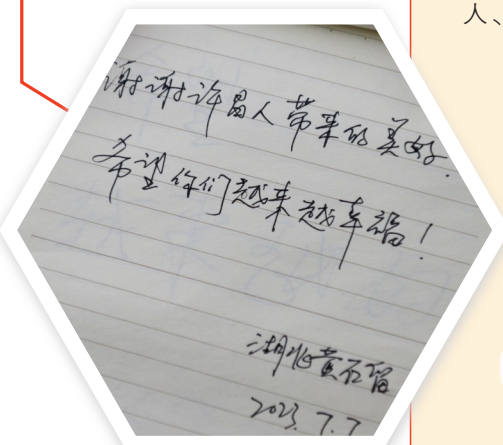 人、
谢谢许昌人带来的美好.
希望你们越来越幸福!
湖北黄石留
2023.7.7